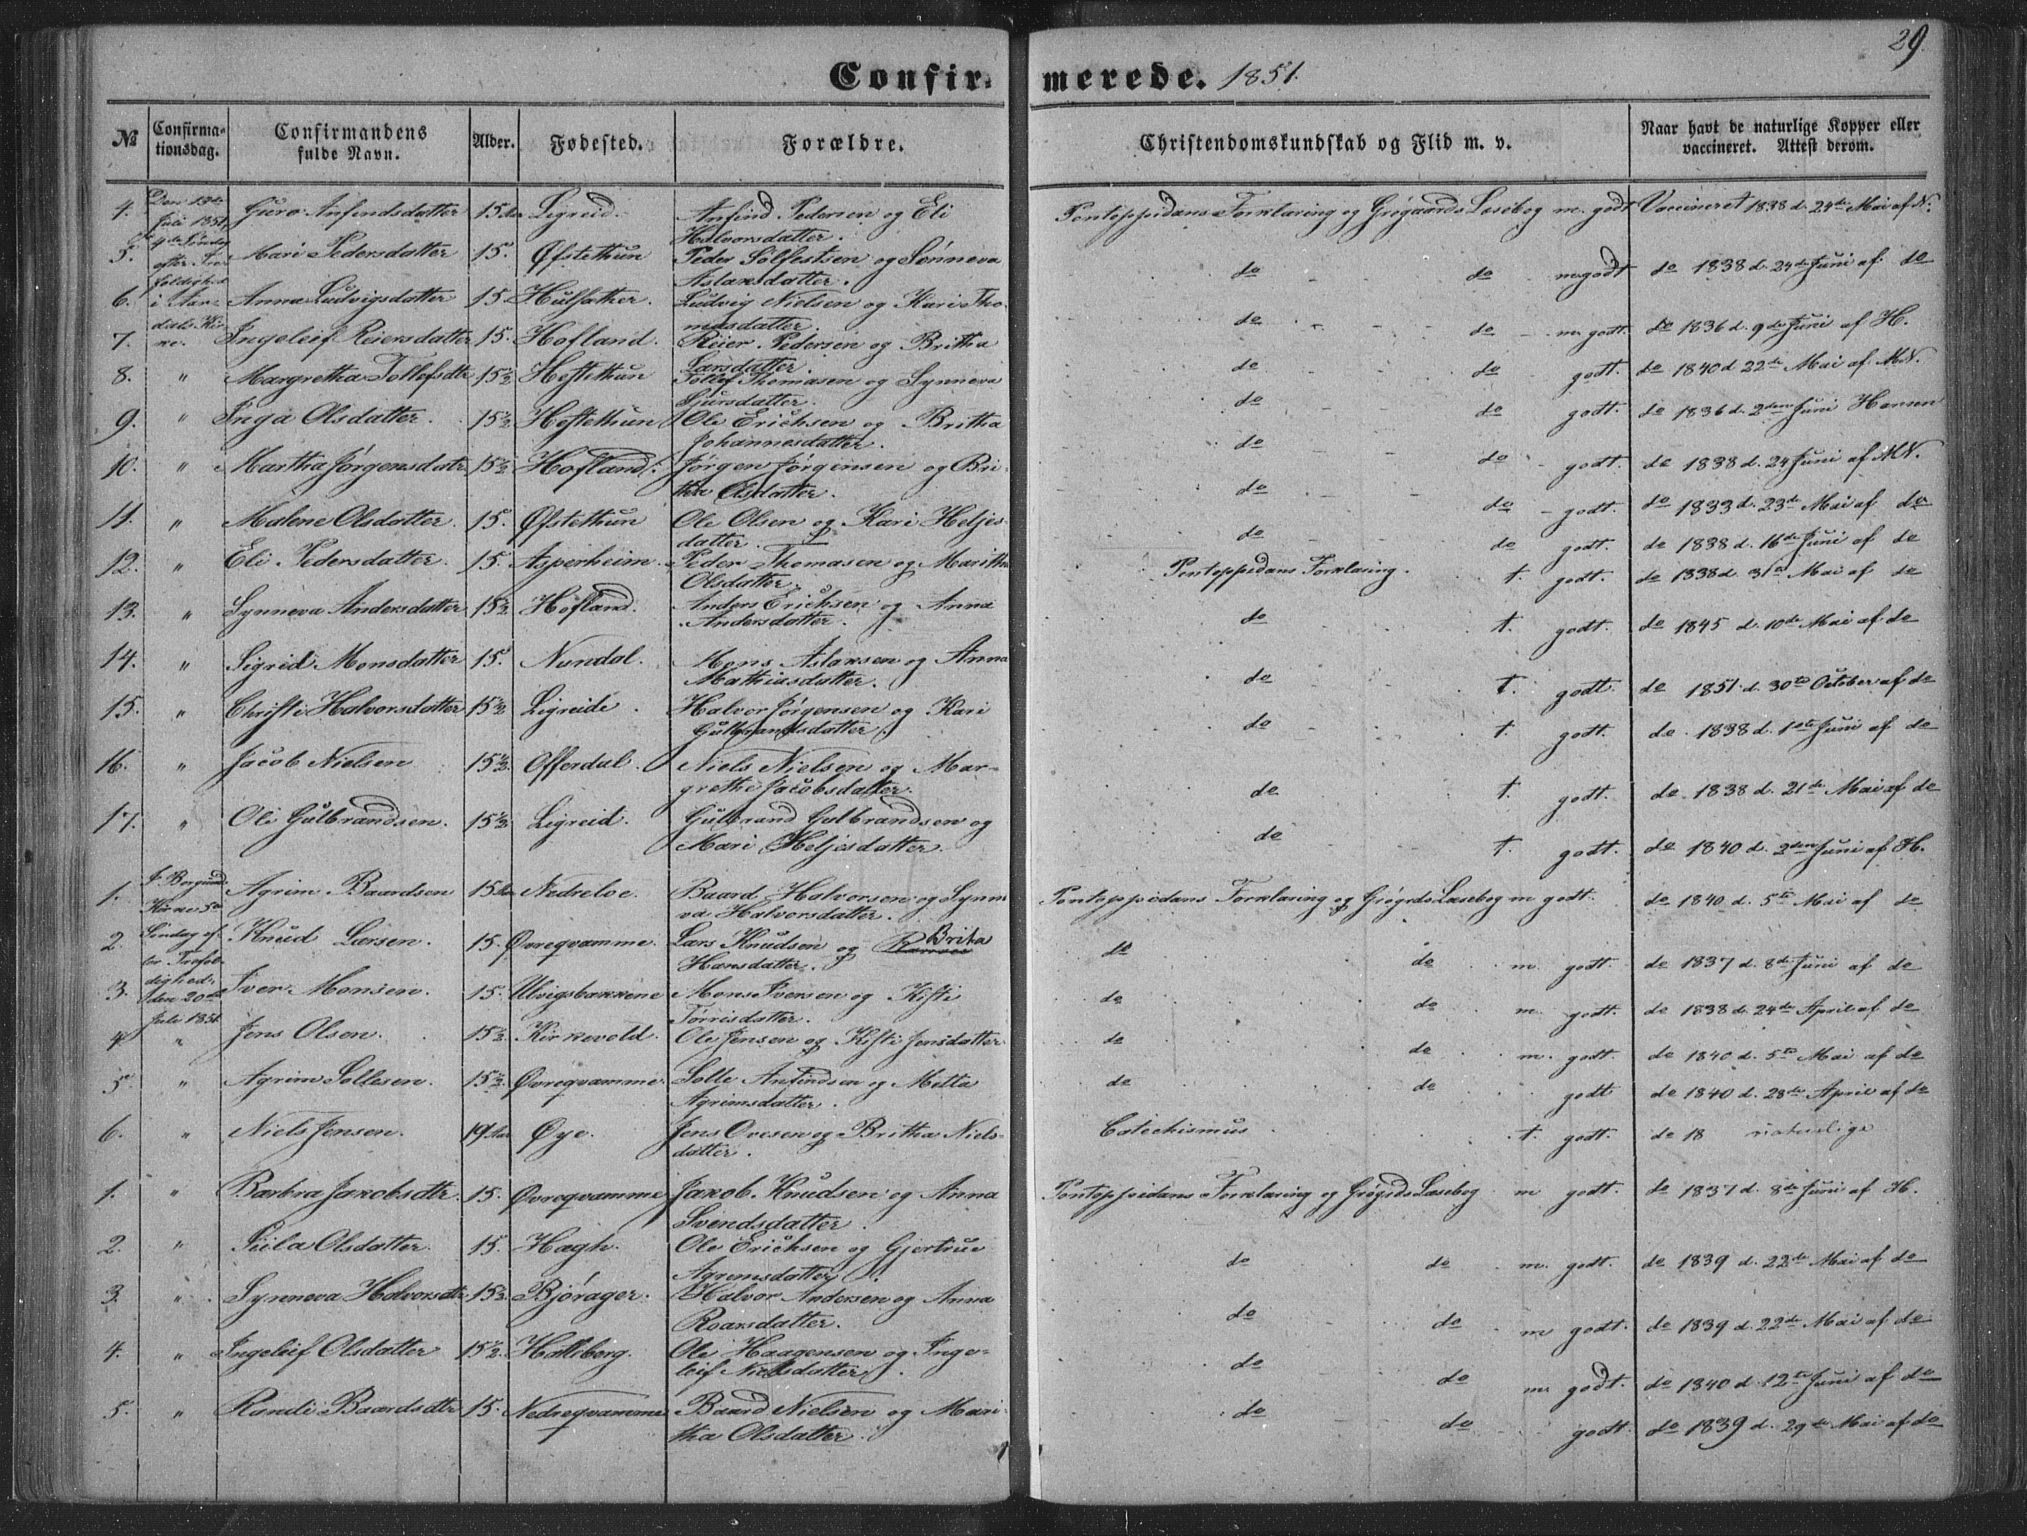 29
Confirmerede. 1851.
№ Confirmationsdag. Confirmandens fulde Navn. Alder. Fødested. Forældre. Christendomskundskab og Flid m. v. Naar havt de naturlige Kopper eller vaccineret. Attest derom.
4. Den 13de Juli 1851, Guro Anfindsdatter 15 Aar Ligreid. Anfind Pedersen og Eli Halvorsdatter. Pontoppidans Forklaring og Grøgaards Læsebog m. godt Vaccineret 1838 d. 24de Mai af N.
5. 4de Søndag efter Tre- Mari Pedersdatter 15. Øfstethun Peder Solfestsen og Sønneva Aslaksdatter. do do m godt do 1838 d. 24de Juni af do
6. foldighed i Aar- Anna Ludvigsdatter 15. Hulsæther. Ludvig Nielsen og Kari Thomasdatter. do do m. godt. do 1836 d. 9de Juni af H.
7. dals Kirke. Ingeleif Reiersdatter 15. Hofland. Reier Pedersen og Britha Larsdatter. do do godt. do 1840 d 22de Mai af MN.
8. " Margretha Tollefsdtr 15½ Heftethun Tollef Thomasen og Synneva Sjursdatter. do do godt. do 1836 d. 2den Juni Hansen
9. " Inga Olsdatter. 15½ Heftethun Ole Erichsen og Britha Johannesdatter. do do godt. do 1838 d. 24 Juni af MN.
10. " Martha Jørgensdatr 15½ Hofland. Jørgen Jørgensen og Britha Olsdatter. do do godt. do 1833 d. 23de Mai af do
11. " Malene Olsdatter. 15. Øfstethun Ole Olsen og Kari Heljesdatter. do do godt. do 1838 d. 16de Juni af do
12. " Eli Pedersdatter. 15. Asperheim. Peder Thomasen og Maritha Olsdatter. Pontoppidans Forklaring. t. godt. do 1838 d. 31te Mai af do
13. " Synneva Andersdatter 15½ Hofland. Anders Erichsen og Anna Andersdatter. do t. godt. do 1845 d. 10de Mai af do
14. " Sigrid Monsdatter 15. Nundal. Mons Aslaksen og Anna Mathiasdatter. do t. godt do 1851 d. 30te October af do
15. " Christi Halvorsdatter 15½ Ligreide. Halvor Jørgensen og Kari Gulbrandsdatter. do t. godt. do 1838 d. 1ste Juni af do
16. " Jacob Nielsen 15½ Offerdal. Niels Nielsen og Margrethe Jacobsdatter. do t. godt. do 1838 d. 21de Mai af do
17. " Ole Gulbrandsen. 15½ Ligreid. Gulbrand Gulbrandsen og Mari Heljesdatter. do t. godt. do 1840 d. 2den Juni af H.
1. I Borgund Kirke 5te Agrim Baardsen 15 Aar Nedreloe. Baard Halvorsen og Synneva Halvorsdatter. Pontoppidans Forklaring og Grøgrds Læsebog m godt. do 1840 d. 5te Mai af do
2. Søndag efter Trefol- Knud Larsen. 15. Øvreqvamme. Lars Knudsen og Brita Hansdatter. do do m. godt. do 1837 d. 8de Juni af do
3. dighed, den 20de Juli 1851 Iver Monsen. 15. Ulvigsbakkene Mons Iversen og Kisti Torrisdatter. do do m. godt. do 1838 d. 24de April af do
4 " Jens Olsen. 15½ Kirkevold. Ole Jensen og Kisti Jensdatter do do m. godt. do 1840 d. 5te Mai af do
5 " Agrim Sollesen. 15½ Øvreqvamme. Solle Anfindsen og Metta Agrimsdatter. do do godt do 1840 d. 28de April af do
6. " Niels Jensen. 19 Aar Øye. Jens Ovesen og Britha Nielsdatter. Catechismus t. godt. do 18 naturlige
1. " Barbra Jakobsdtr. 15. Øvreqvamme Jakob Knudsen og Anna Svendsdatter. Pontoppidans Forklaring og Grøgrds Læsebog m godt. do 1837 d. 8de Juni af H.
2. " Siila Olsdatter. 15. Hægh. Ole Erichsen og Gjertrue Agrimsdatter. do do m. godt. do 1839 d. 22de Mai af do
3. " Synneva Halvorsdtr 15½ Bjøræger. Halvor Andersen og Anna Roarsdatter. do do m godt. do 1839 d. 22de Mai af do
4. " Ingeleif Olsdatter 15½ Hallberg. Ole Haagensen og Ingeleif Nielsdatter. do do m. godt. do 1840 d. 12te Juni af do
5. " Randi Baardsdtr 15. Nedreqvamme Baard Nielsen og Maritha Olsdatter. do do godt. do 1839 d. 29de Mai af do